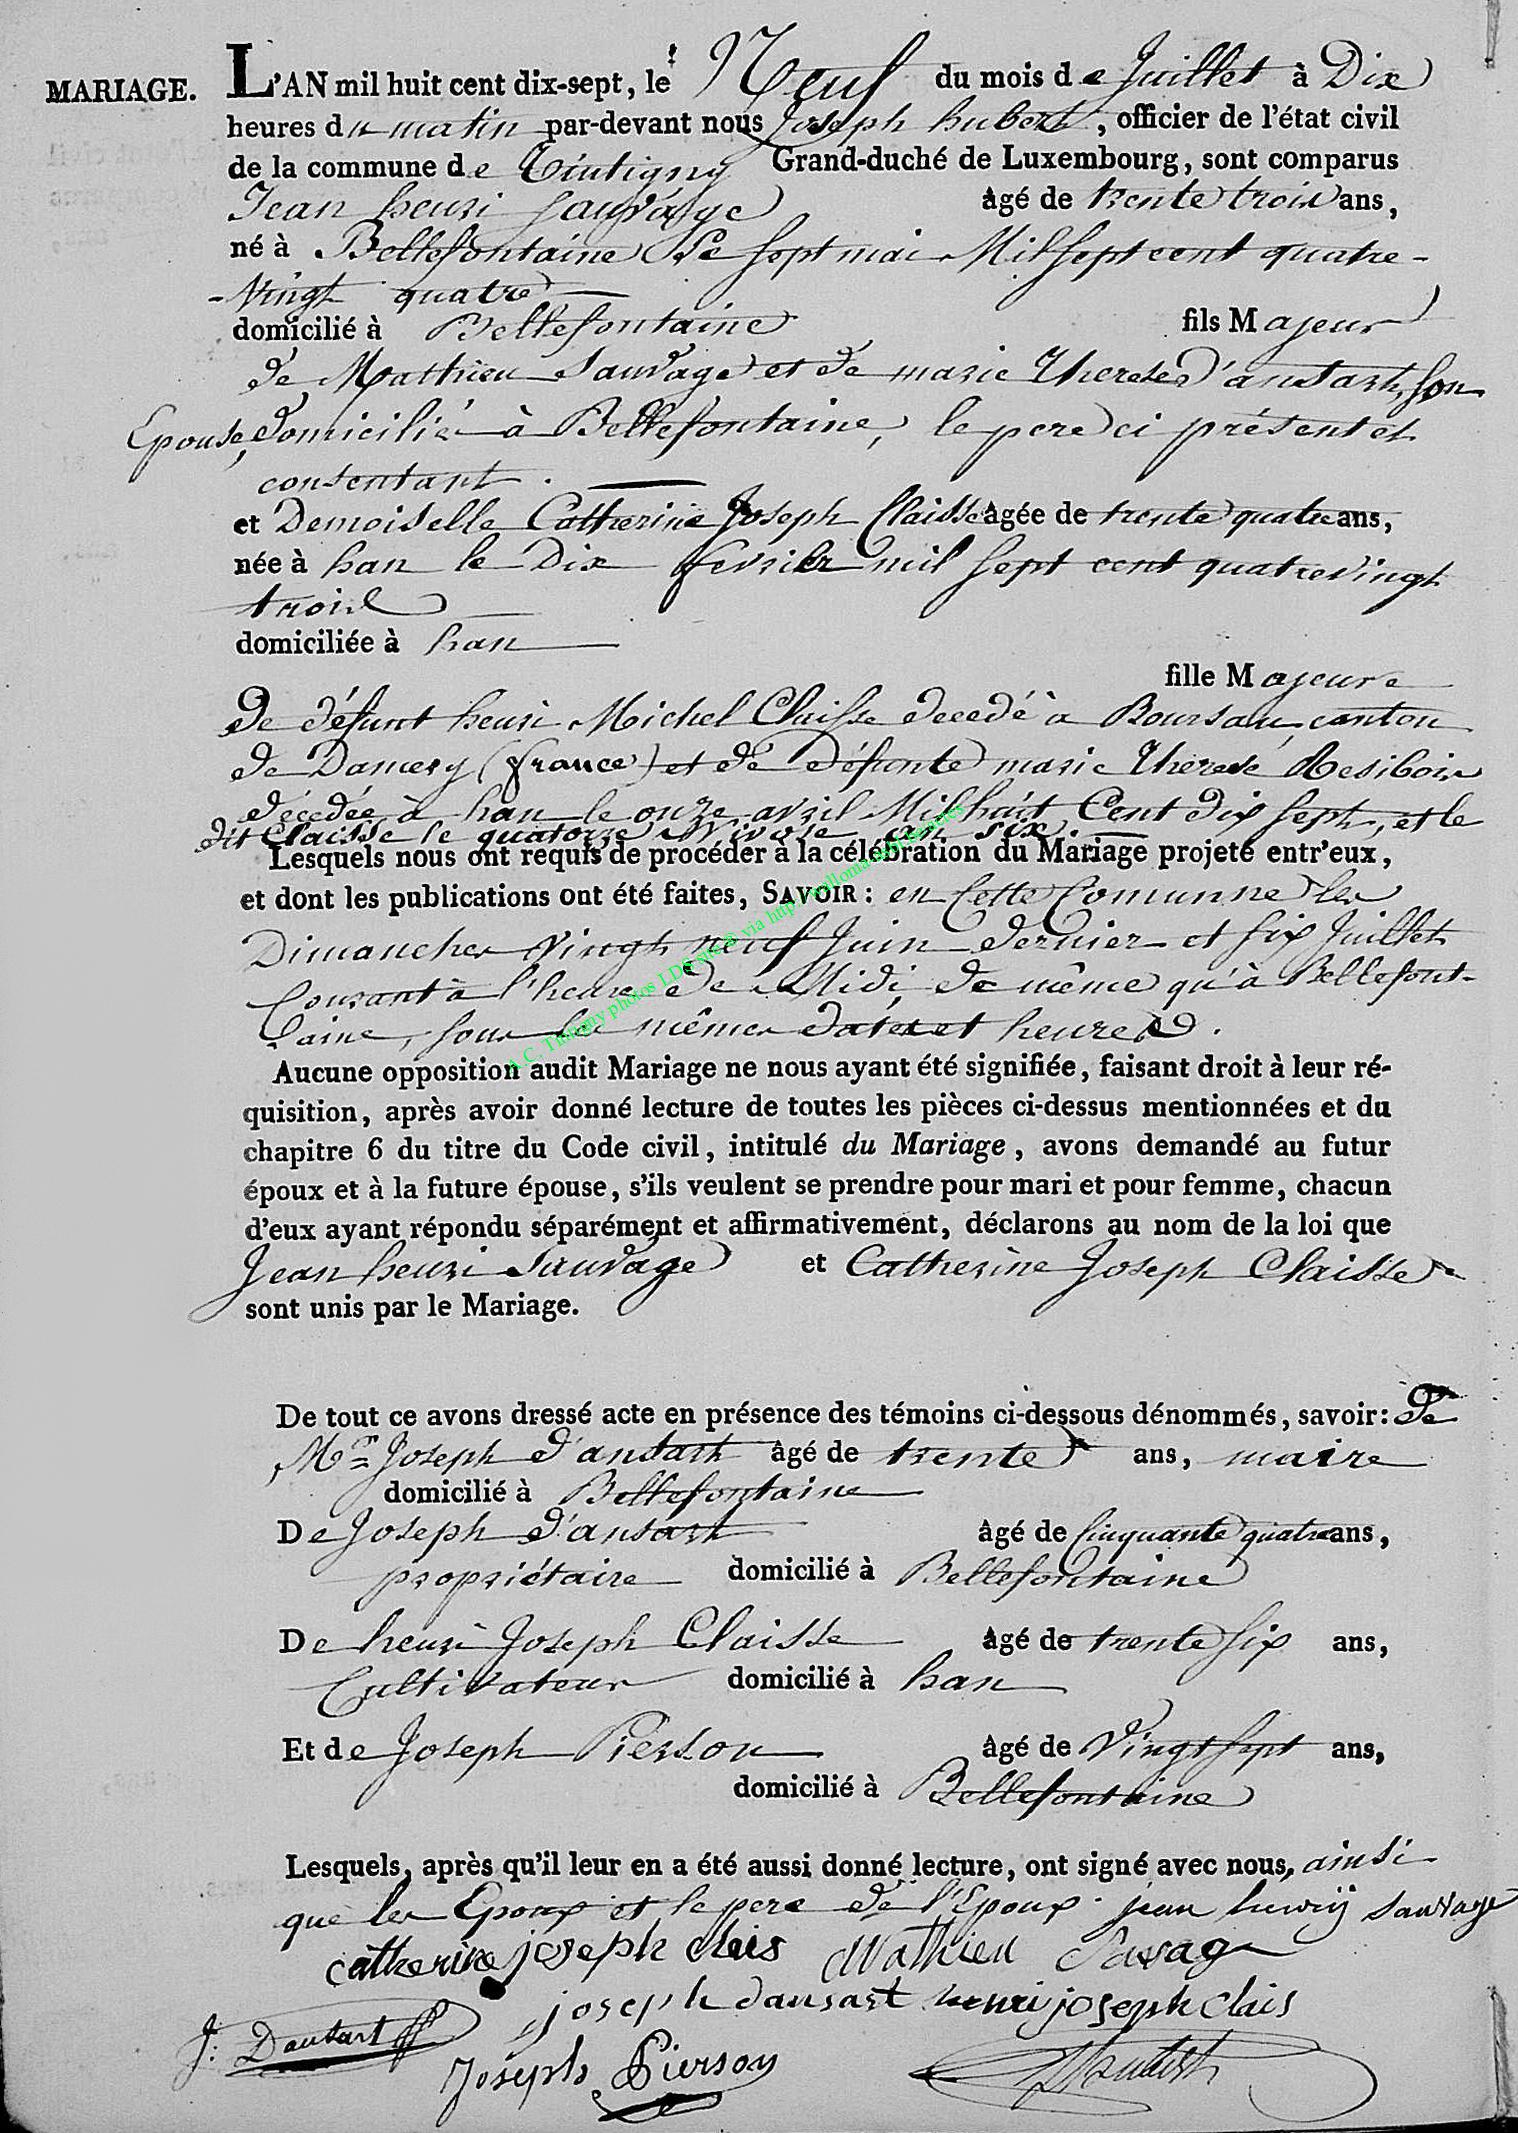 MARIAGE. L'AN mil huit cent dix-sept, le Neuf du mois de Juillet à Dix
heures du matin par-devant nous Joseph hubert, officier de l'état civil
de la commune de Tintigny Grand-duché de Luxembourg, sont comparus
Jean henri Sauvage âgé de trente trois ans,
né à Bellefontaine Le sept mai Mil sept cent quatre-
-Vingt quatre
domicilié à Bellefontaine fils Majeur
de Mathieu Sauvage et de marie Therese d'ansart, son
Epouse, domicilié à Bellefontaine, le pere ci présent et
consentant.
et Demoiselle Catherine Joseph Claisse âgée de trente quatre ans,
née à han le Dix fevrier mil sept cent quatrevingt
trois
domiciliée à han
fille Majeure
De défunt henri Michel Claisse decedé à Boursau, canton
de Damery (france) et de défunte marie Therese Resibois
décédée à han le onze avril Mil huit Cent dix sept, et le
dit Claisse le quatorze Nivose an six
Lesquels nous ont requis de procéder à la célébration du Mariage projeté entr'eux,
et dont les publications ont été faites, SAVOIR: en Cette Comunne les
Dimanches Vingt neuf Juin dernier et six Juillet
Courant à l'heure de Midi, de même qu'à Bellefont-
taine, sous les mêmes dates et heures.
A.C. Tintigny photos LDS site © via http://wallonia-asbl.be/actes
Aucune opposition audit Mariage ne nous ayant été signifiée, faisant droit à leur ré-
quisition, après avoir donné lecture de toutes les pièces ci-dessus mentionnées et du
chapitre 6 du titre du Code civil, intitulé du Mariage, avons demandé au futur
époux et à la future épouse, s'ils veulent se prendre pour mari et pour femme, chacun
d'eux ayant répondu séparément et affirmativement, déclarons au nom de la loi que
Jean henri Sauvage et Catherine Joseph Claisse
sont unis par le Mariage.
De tout ce avons dressé acte en présence des témoins ci-dessous dénommés, savoir: De
Mr Joseph d'ansart âgé de trente ans, maire
domicilié à Bellefontaine
De Joseph d'ansart âgé de Cinquante quatre ans,
propriétaire domicilié à Bellefontaine
De henri Joseph Claisse âgé de trente six ans,
Cultivateur domicilié à han
Et de Joseph Pierson âgé de Vingt sept ans,
domicilié à Bellefontaine
Lesquels, après qu'il leur en a été aussi donné lecture, ont signé avec nous, ainsi
que les Epoux et le pere de l'Epoux. jean henrij sauvage
catherine joseph clais Mathieu Savage
joseph dansart henri joseph clais
J: Dansart
Joseph Pierson